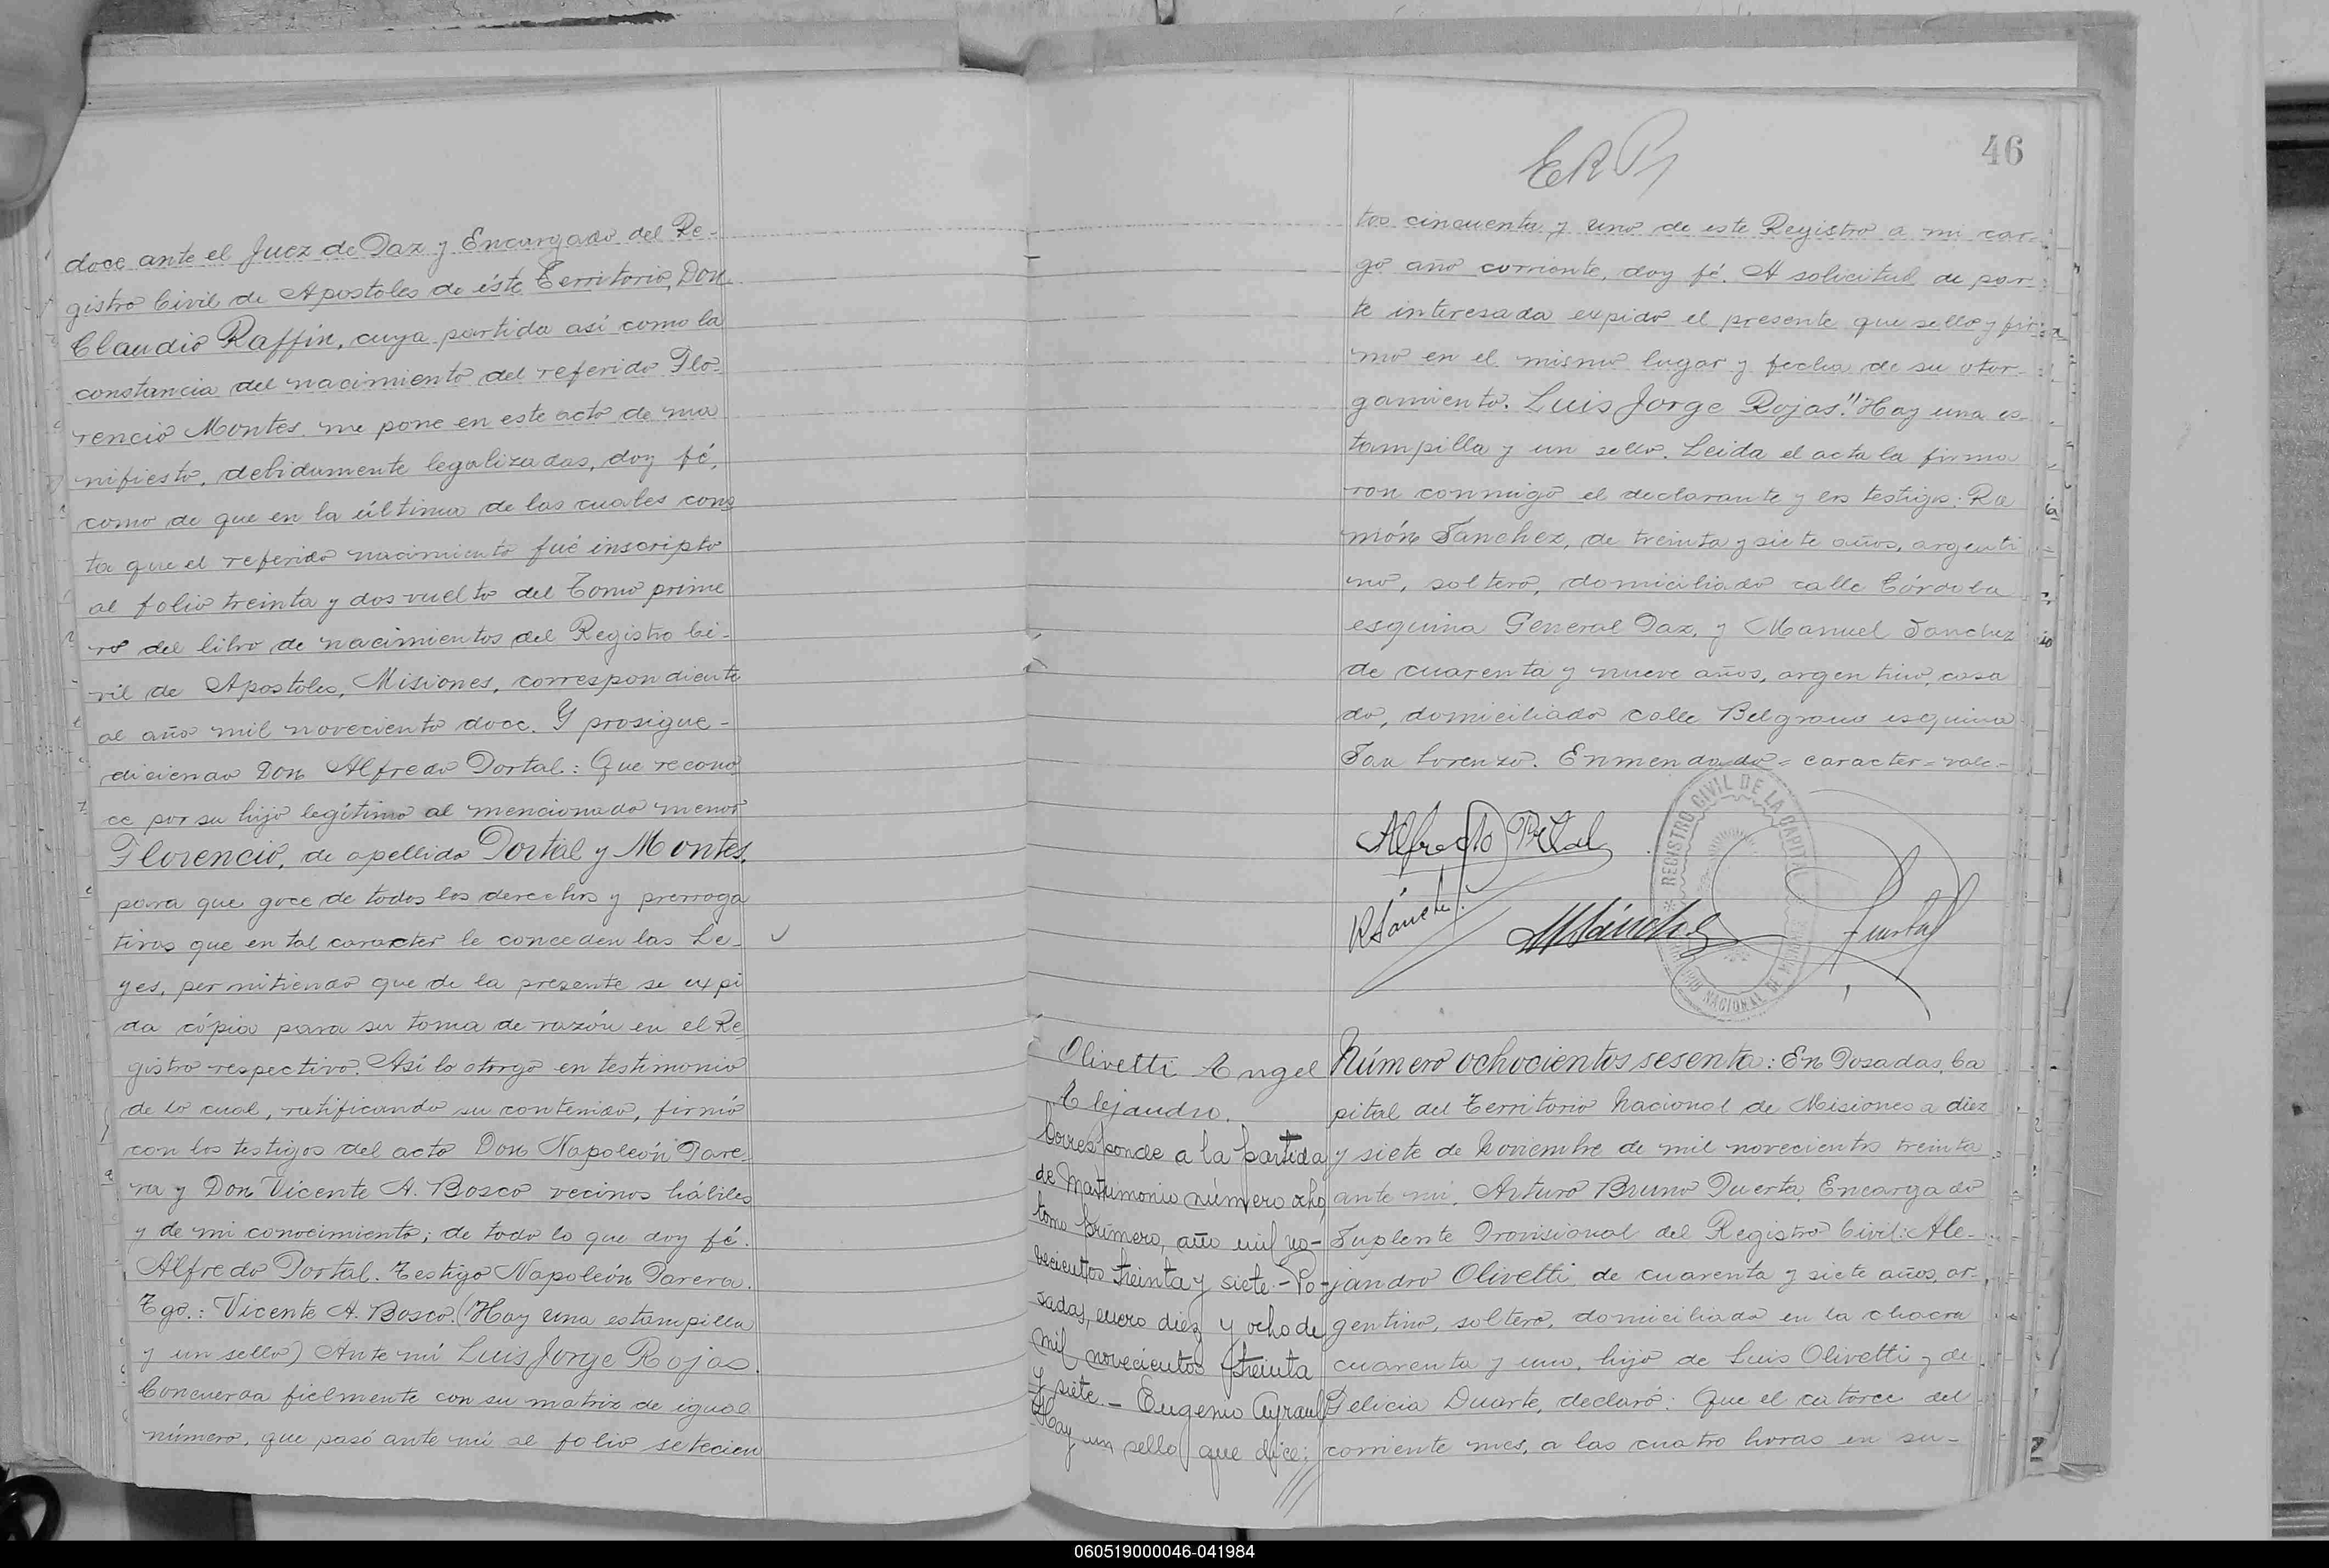 doce ante el Juez de Paz y Encargado del Re-
gistro Civil de Apostoles de éste Territorio, Don
Claudio Raffin, cuya partida así como la
constancia del nacimiento del referido Flo-
rencio Montes me pone en este acto de ma
nifiesto, debidamente legalizadas, doy fé,
como de que en la última de las cuales cons
ta que el referido nacimiento fué inscripto
al folio treinta y dos vuelto del Tomo prime
ro del libro de nacimientos del Registro Ci-
vil de Apostoles, Misiones, correspondiente
al año mil noveciento doce. Y prosigue-
diciendo Don Alfredo Portal: Que recono
ce por su hijo legítimo al mencionado menor
Florencio, de apellido Portal y Montes,
para que goce de todos los derechos y prerroga
tivas que en tal caracter le conceden las Le-
yes, permitiendo que de la presente se expi
da cópia para su toma de razón en el Re
gistro respectivo. Así lo otorgo en testimonio
de lo cual, ratificando su contenido, firmó
con los testigos del acto Don Napoleón Pare-
ra y Don Vicente A. Bosco vecinos hábiles
y de mi conocimiento; de todo lo que doy fé.
Alfredo Portal. Testigo Napoleón Parera.
Tgo.: Vicente A. Bosco. (Hay una estampilla
y un sello) Ante mí Luis Jorge Rojas.
Concuerda fielmente con su matriz de igual
número, que pasó ante mí al folio setecien
46
tos cincuenta y uno de este Registro a mi car-
go año corriente, doy fé. A solicitud de par-
te interesada expido el presente que sello y fir-
mo en el mismo lugar y fecha de su otor-
gamiento. Luis Jorge Rojas." Hay una es-
tampilla y un sello. Leida el acta la firma
ron conmigo el declarante y los testigos: Ra
món Sanchez, de treinta y siete años, argenti
no, soltero, domiciliado calle Córdoba
esquina General Paz, y Manuel Sanchez
de cuarenta y nueve años, argentino, casa
do, domiciliado calle Belgrano esquina
San Lorenzo. Enmendado = caracter = vale.-
Alfredo Portal
R Sánchez
M Sánchez
REGISTRO CIVIL DE LA CAPITAL
NACIONAL DE MISIONES
Olivetti Angel
Alejandro.
Corresponde a la partida
de Matrimonio número ocho,
tomo primero, año mil no-
vecientos treinta y siete.- Po-
sadas, enero diez y ocho de
mil novecientos treinta
y siete.- Eugenio Ayrault
Hay un sello que dice:
Número ochocientos sesenta: En Posadas, Ca
pital del Territorio Nacional de Misiones a diez
y siete de Noviembre de mil novecientos treinta
ante mí, Arturo Bruno Puerta, Encargado
Suplente Provisional del Registro Civil: Ale-
jandro Olivetti, de cuarenta y siete años, ar-
gentino, soltero, domiciliado en la chacra
cuarenta y uno, hijo de Luis Olivetti y de
Felicia Duarte, declaró: Que el catorce del
corriente mes, a las cuatro horas en su-
060519000046-041984